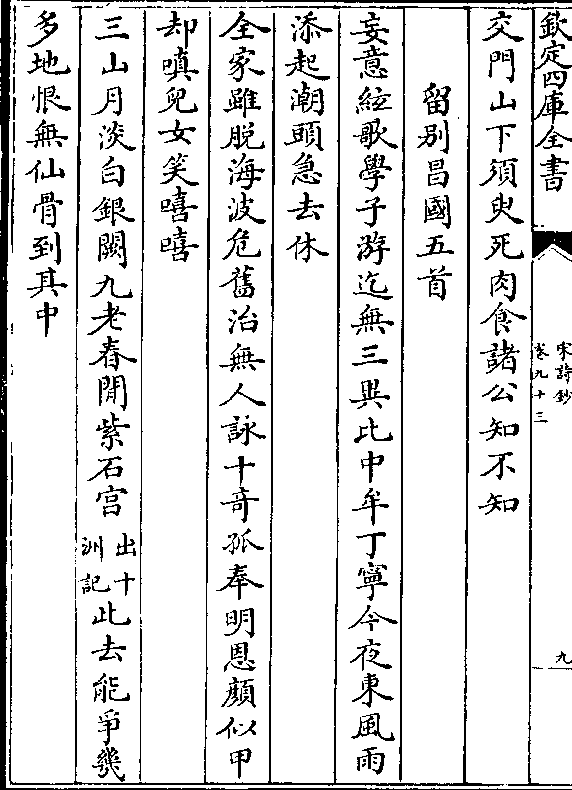 欽定四庫全書
宋詩鈔
卷九十三
九
交門山下須臾死肉食諸公知不知
留别昌國五首
妄意絃歌學子游迄無三異比中牟丁寧今夜東風雨
添起潮頭急去休
全家雖脱海波危舊治無人詠十奇孤奉明恩顔似甲
却嗔兒女笑嘻嘻
三山月淡白銀闕九老春閒紫石宫出十洲記此去能爭幾
多地恨無仙骨到其中